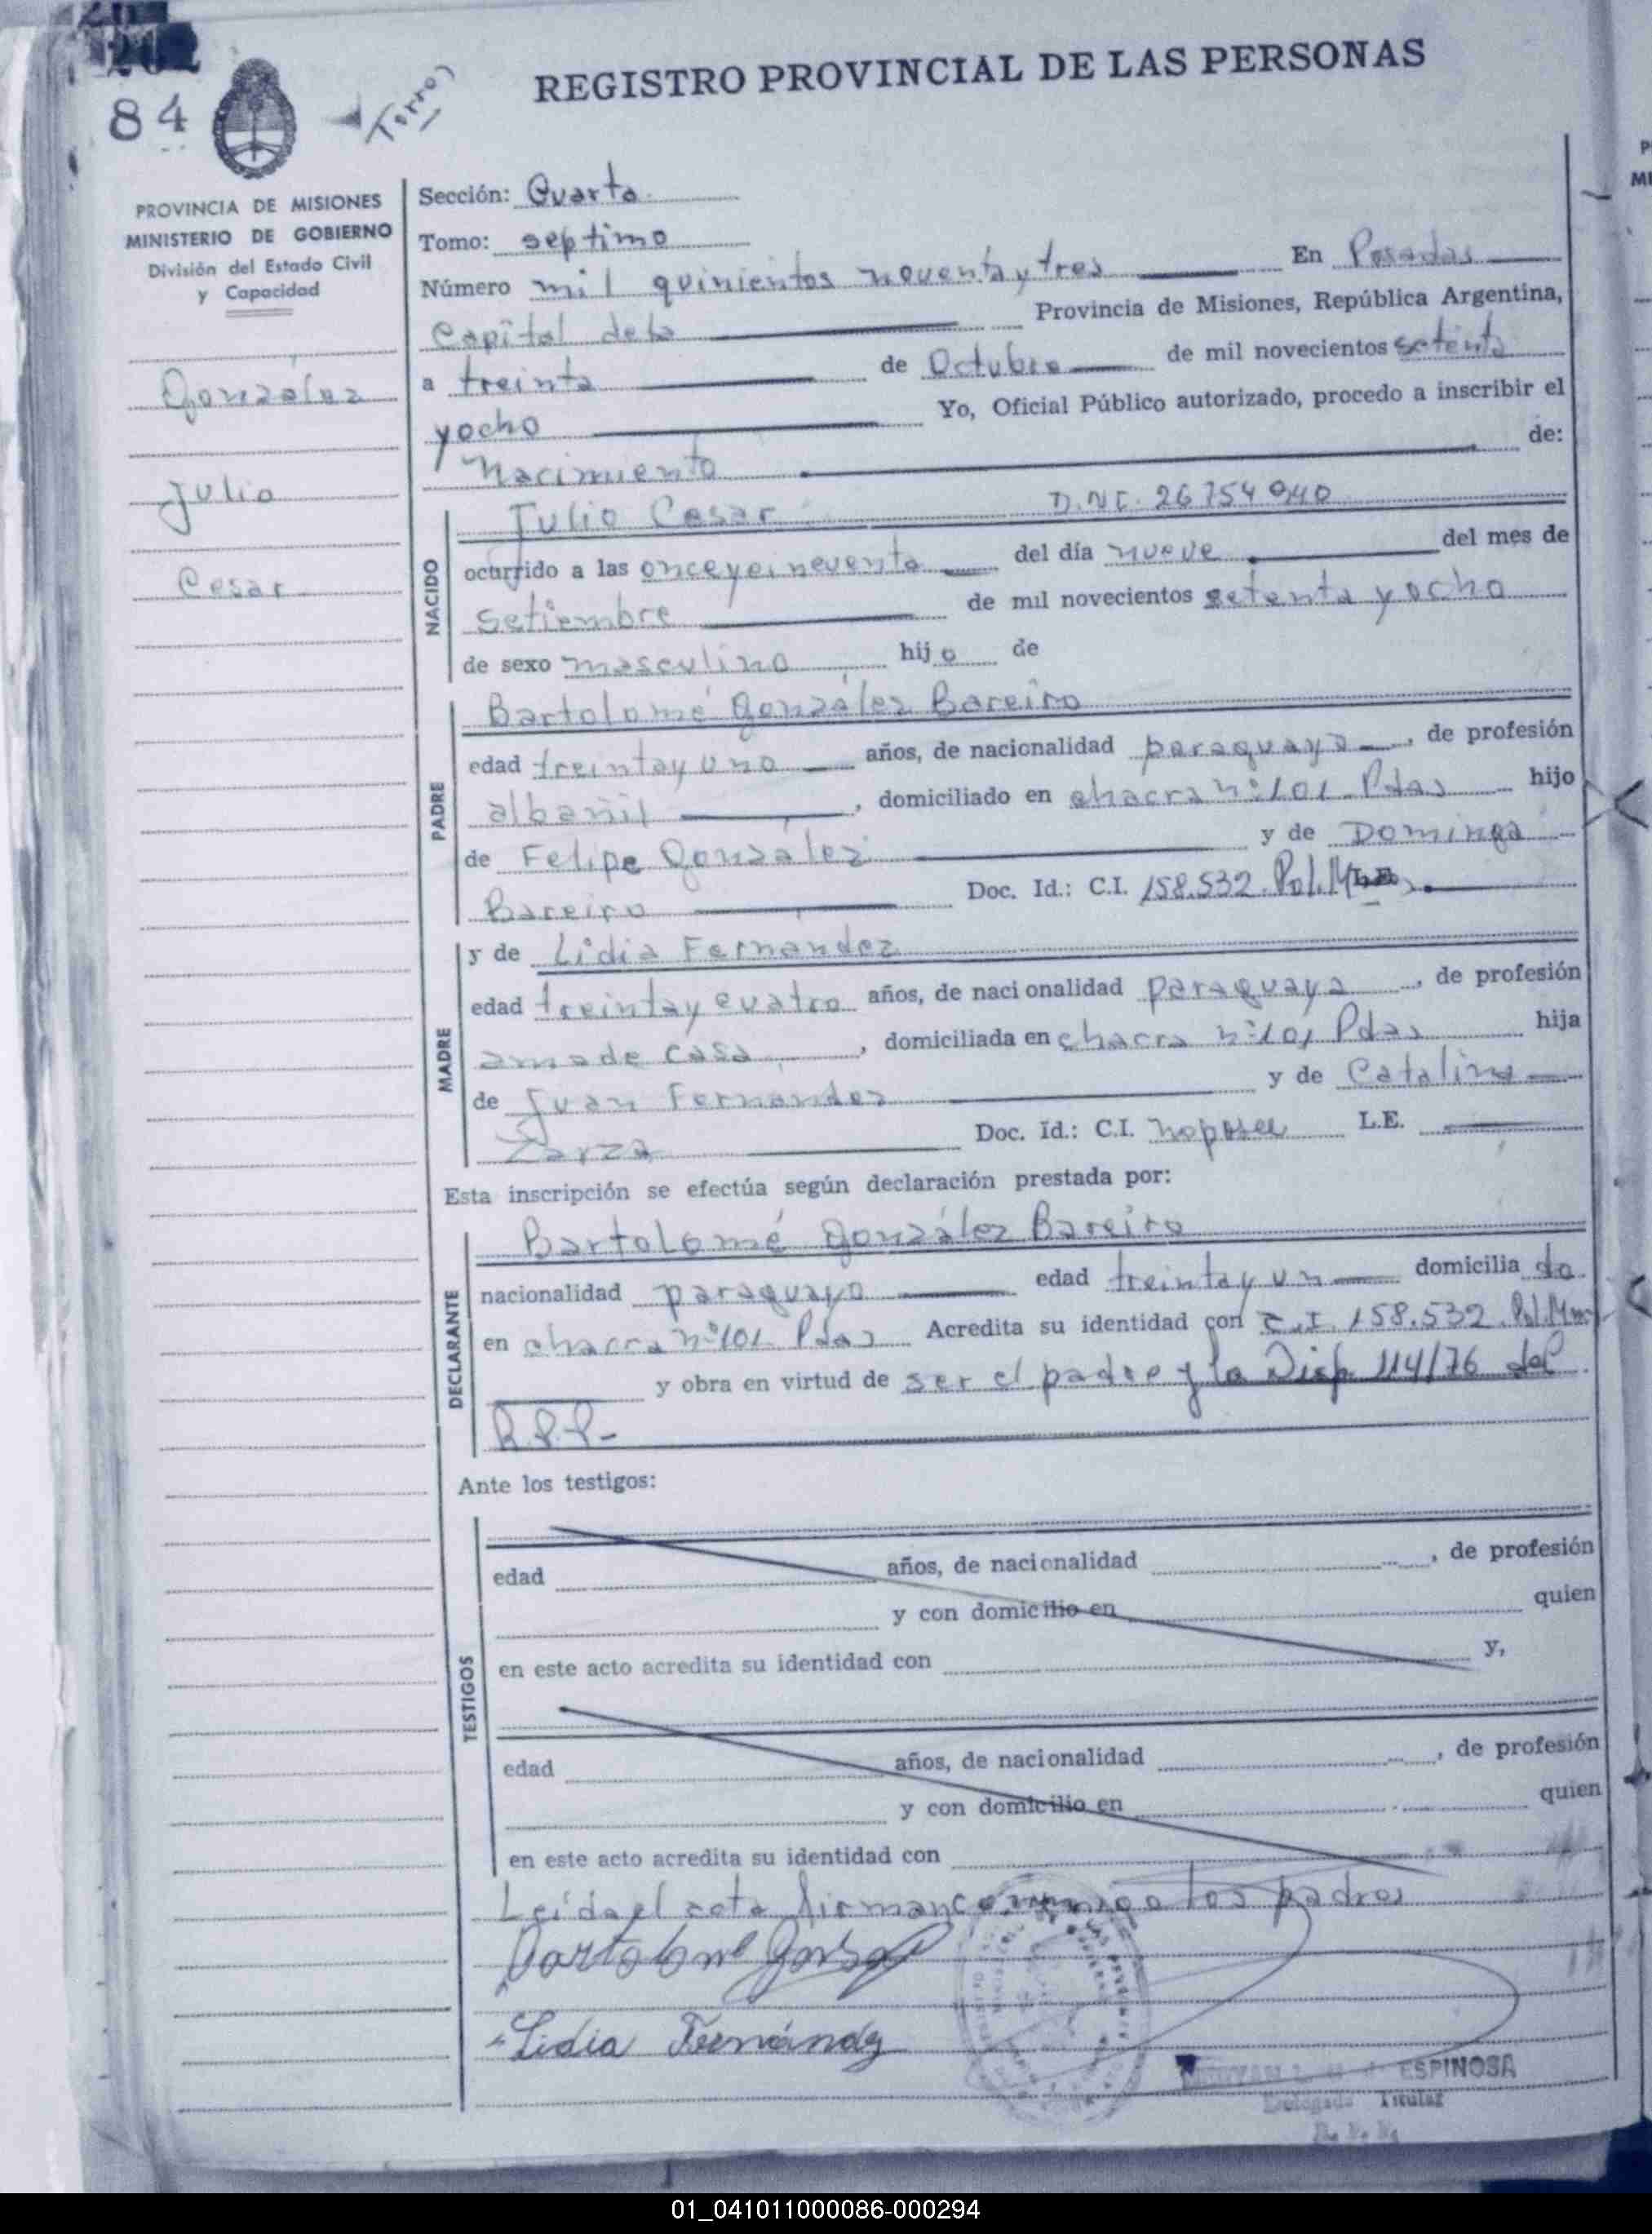 84
REGISTRO PROVINCIAL DE LAS PERSONAS
PROVINCIA DE MISIONES
MINISTERIO DE GOBIERNO
División del Estado Civil
y Capacidad
González
Julio
Cesar
Sección: Cuarta
Tomo: septimo
Número mil quinientos noventa y tres En Posadas
Capital de la Provincia de Misiones, República Argentina,
a treinta de Octubre de mil novecientos setenta
y ocho Yo, Oficial Público autorizado, procedo a inscribir el
Nacimiento de:
NACIDO
Julio Cesar D.N.I. 26754940
ocurrido a las once y cincuenta del día nueve del mes de
setiembre de mil novecientos setenta y ocho
de sexo masculino hijo de
PADRE
Bartolomé González Bareiro
edad treinta y uno años, de nacionalidad paraguaya, de profesión
albañil, domiciliado en chacra nº 101 Pdas hijo
de Felipe González y de Dominga
Bareiro Doc. Id.: C.I. 158.532 Pol.
MADRE
y de Lidia Fernandez
edad treinta y cuatro años, de nacionalidad paraguaya, de profesión
ama de casa, domiciliada en chacra nº 101 Pdas hija
de Juan Fernandez y de Catalina
Zarza Doc. Id.: C.I. no posee L.E.
Esta inscripción se efectúa según declaración prestada por:
DECLARANTE
Bartolomé González Bareiro
nacionalidad paraguayo edad treinta y un domiciliado
en chacra nº 101 Pdas Acredita su identidad con C.I. 158.532 Pol.
y obra en virtud de ser el padre y la Disp. 114/76 del
R.P.P.-
Ante los testigos:
TESTIGOS
edad años, de nacionalidad , de profesión
y con domicilio en quien
en este acto acredita su identidad con y,
edad años, de nacionalidad , de profesión
y con domicilio en quien
en este acto acredita su identidad con
Leída el acta firman conmigo los padres
Lidia Fernández
ESPINOSA
Delegado Titular
01_041011000086-000294